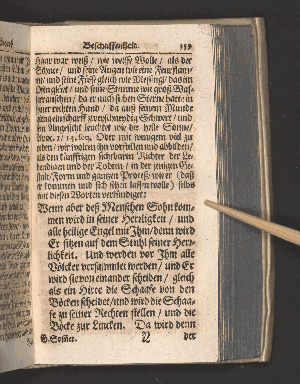 Beschaffenheit. 339
Haar war weiß / wie weisse Wolle / als der
Schnee / und seine Augen wie eine Feuerflam-
me / und seine Füsse gleich wie Messing / das im
und seine Stimme wie groß Was-
ser rauschen / da er auch sieben Sterne hatte in
seiner rechten Hand / da auß seinem Munde
ein scharff zweyschneidig Schwert / und
sein Angesicht leuchtet wie die helle Sonne /
Apoc. 1 / 13. seq. Oder was
wir wollen ihn vorstellen und abbilden /
als den künfftigen sichtbaren Richter der Le-
bendigen und der Todten / in der jenigen Ge-
stalt / Form und gantzen Proceß / wie er (daß
er kommen und sich sehen lassen wolle) selbs
mit diesen Worten verkündiget:
Wenn aber deß Menschen Sohn kom-
men wird in seiner Herrligkeit / und
alle heilige Engel mit Ihm / denn wird
Er sitzen auf dem Stuhl seiner Herr-
lichkeit. Und werden vor Ihm alle
Völcker versammlet werden / und Er
wird sie von einander scheiden / gleich
als ein Hirte die Schaafe von den
Böcken scheidet / und wird die Schaa-
fe zu seiner Rechten stellen / und die
Böcke zur Lincken. Da wird denn
der